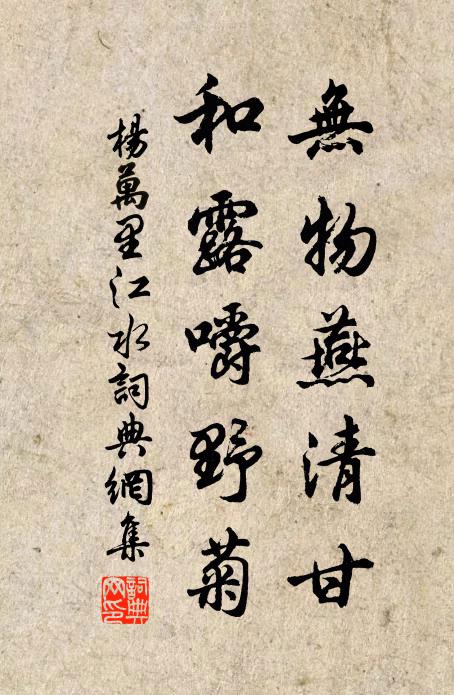 無物燕清甘
和露嚼野菊
楊萬里江水詞典網集
詞典網印